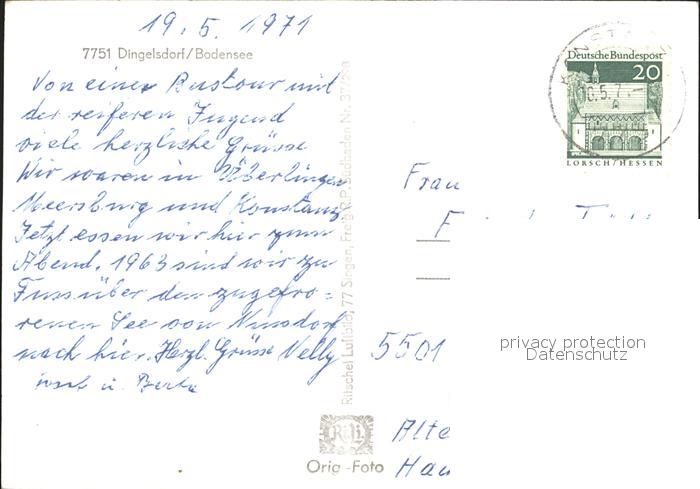 19. 5. 1971
7751 Dingelsdorf/Bodensee
Von einer Bustour mit
der reiferen Jugend
viele herzliche Grüsse
Wir waren in Überlingen
Meersburg und Konstanz
Jetzt essen wir hier zum
Abend. 1963 sind wir zu
Fuss über den zugefro=
renen See von Nussdorf
nach hier. Herzl. Grüsse Nelly
u. Berta
Ritschel Luftbild, 77 Singen, Freig. R.P. Südbaden Nr. 37/
RiLi
Orig.-Foto
KONSTANZ
20.5.7
Deutsche Bundespost
20
LORSCH/HESSEN
Frau
5501
Alte
Hau
privacy protection
Datenschutz